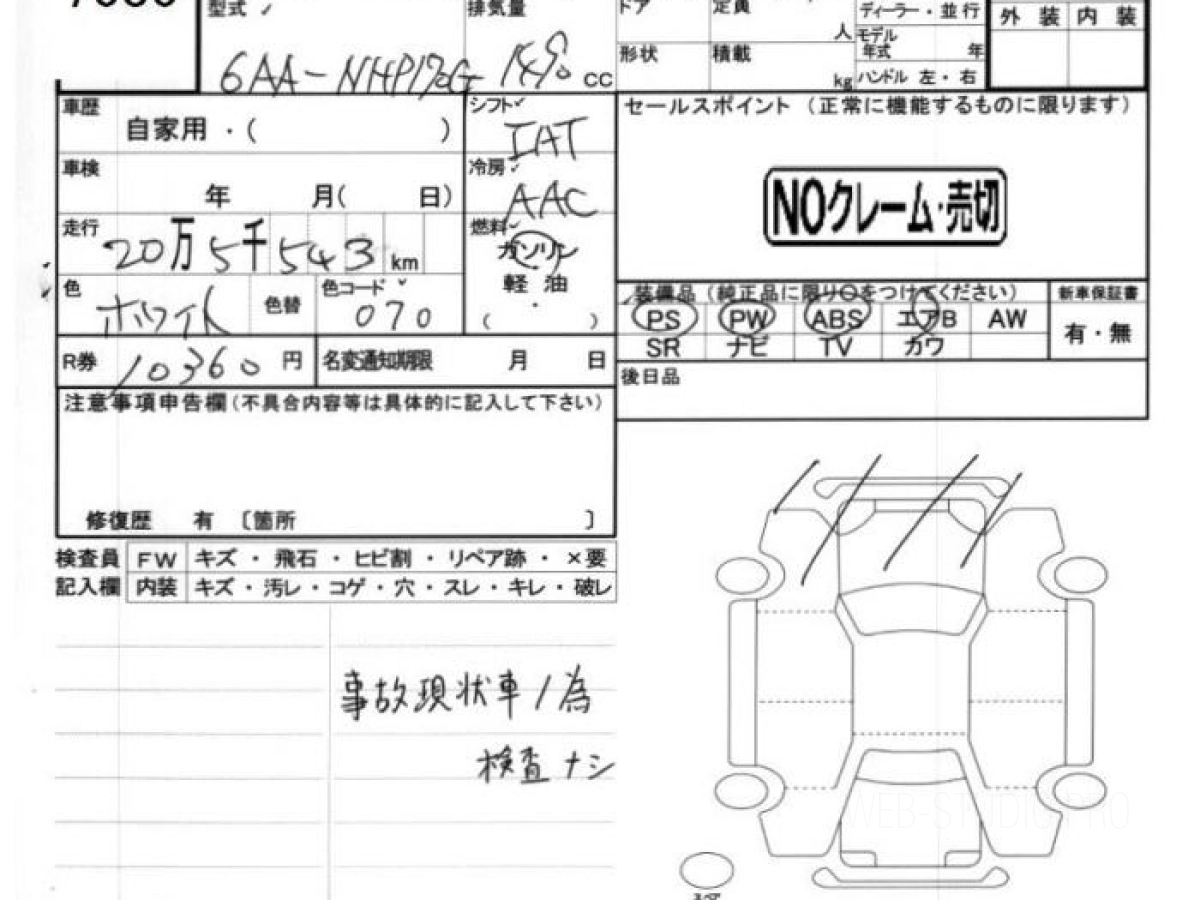 型式 排気量 ドア 定員 ディーラー・並行 外装 内装
6AA-NHP170G 1490 cc 形状 積載 人 モデル年式 年
kg ハンドル 左・右
車歴 自家用・( ) シフト IAT セールスポイント（正常に機能するものに限ります）
車検 年 月( 日) 冷房 AAC NOクレーム・売切
走行 20万5千543km 燃料 ガソリン
軽油
( )
色 ホワイト 色替 色コード 070
装備品（純正品に限り○をつけてください） 新車保証書
PS PW ABS エアB AW 有・無
SR ナビ TV カワ
R券 10360円 名変通知期限 月 日 後日品
注意事項申告欄（不具合内容等は具体的に記入して下さい）
修復歴 有 〔箇所 〕
検査員 FW キズ・飛石・ヒビ割・リペア跡・×要
記入欄 内装 キズ・汚レ・コゲ・穴・スレ・キレ・破レ
事故現状車ノ為
検査ナシ
WEB-STUDIO PRO